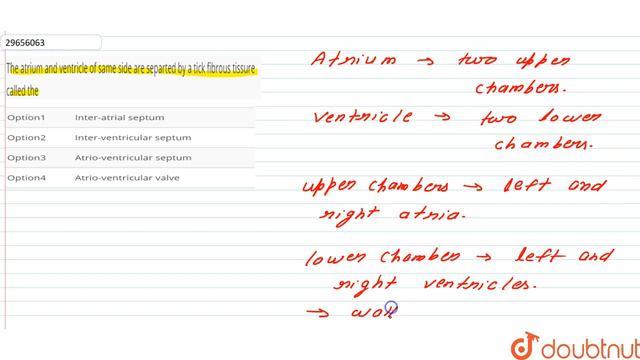 29656063
The atrium and ventricle of same side are separted by a tick fibrous tissure
called the
Option1 Inter-atrial septum
Option2 Inter-ventricular septum
Option3 Atrio-ventricular septum
Option4 Atrio-ventricular valve
Atrium → two upper
chambers.
ventricle → two lower
chambers.
upper chambers → left and
right atria.
lower chamber → left and
right ventricles.
→ wall
doubtnut